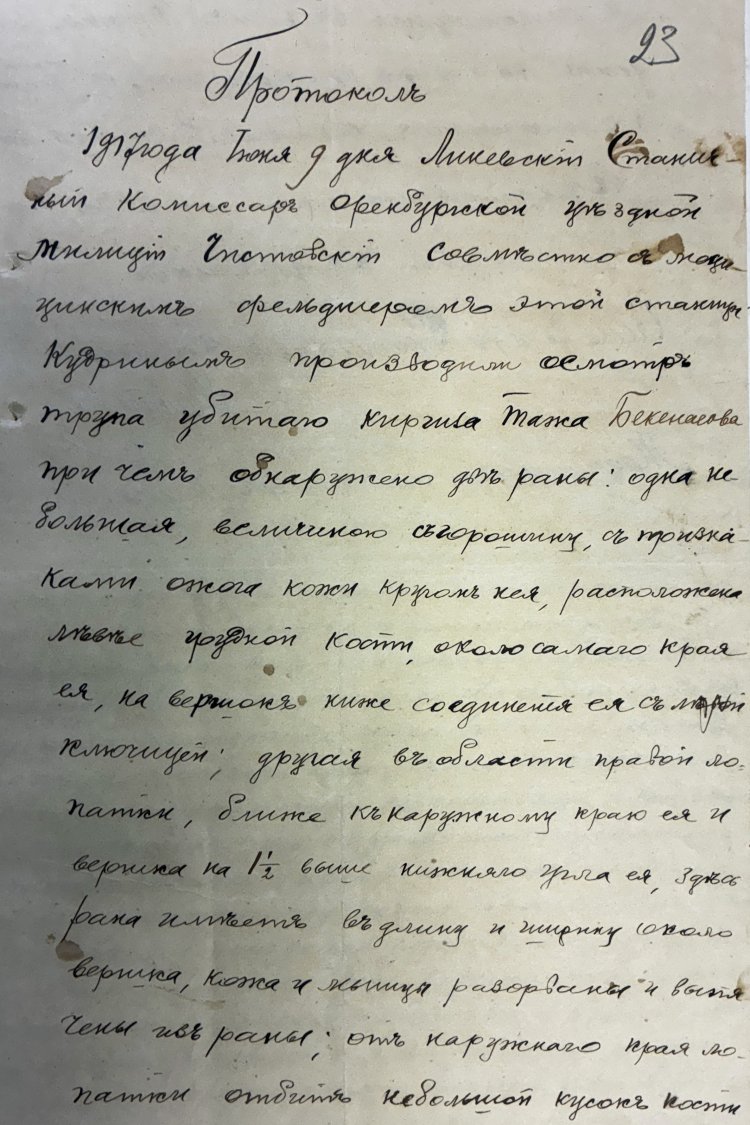 23
Протоколъ
1917 года Іюня 9 дня Линевскій Станич-
ный Комиссаръ Оренбургской уѣздной
Милиціи Чистовскій совмѣстно съ меди-
цинскимъ фельдшеромъ этой станицы
Кудринымъ производили осмотръ
трупа убитаго киргиза Тажа Бекенасова
при чемъ обнаружено двѣ раны: одна не
большая, величиною съ горошину, съ призна-
ками ожога кожи кругомъ нея, расположена
лѣвѣе грудной кости, около самаго края
ея, на вершокъ ниже соединенія ея съ
ключицей; другая въ области правой ло-
патки, ближе къ наружному краю ея и
вершка на 1 1/2 выше нижняго угла ея, здѣсь
рана имѣетъ въ длину и ширину около
вершка, кожа и мышцы разорваны и выпя
чены изъ раны; отъ наружнаго края ло-
патки отбитъ небольшой кусокъ кости